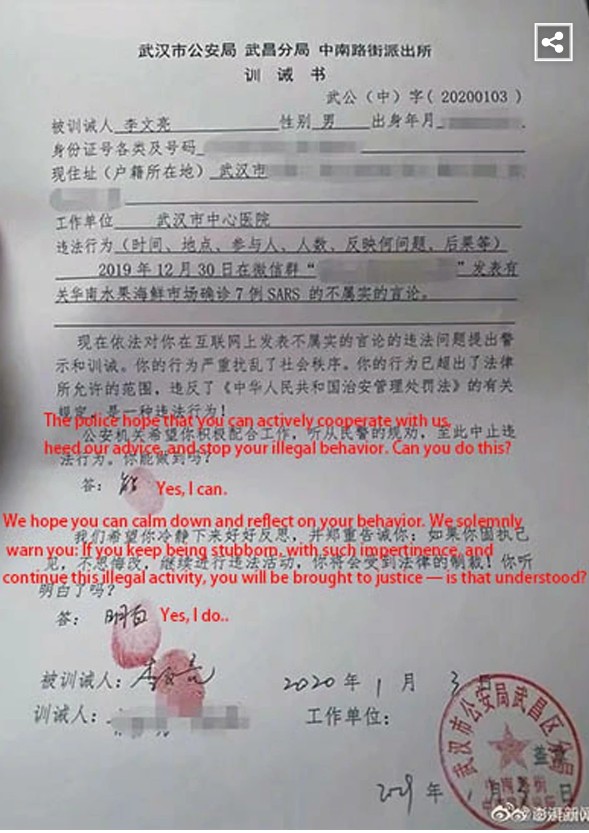 武汉市公安局 武昌分局 中南路街派出所
训诫书
武公（中）字（20200103）
被训诫人 李文亮 性别 男 出身年月
身份证号各类及号码
现住址（户籍所在地） 武汉市
工作单位 武汉市中心医院
违法行为（时间、地点、参与人、人数、反映何问题、后果等）
2019年12月30日在微信群“ ”发表有
关华南水果海鲜市场确诊7例SARS的不属实的言论。
现在依法对你在互联网上发表不属实的言论的违法问题提出警
示和训诫。你的行为严重扰乱了社会秩序。你的行为已超出了法律
所允许的范围，违反了《中华人民共和国治安管理处罚法》的有关
规定，是一种违法行为！
The police hope that you can actively cooperate with us,
公安机关希望你积极配合工作，听从民警的规劝，至此中止违
heed our advice, and stop your illegal behavior. Can you do this?
法行为。你能做到吗？
答：能 Yes, I can.
We hope you can calm down and reflect on your behavior. We solemnly
我们希望你冷静下来好好反思，并郑重告诫你：如果你固执己
warn you: If you keep being stubborn, with such impertinence, and
见，不思悔改，继续进行违法活动，你将会受到法律的制裁！你听
continue this illegal activity, you will be brought to justice — is that understood?
明白了吗？
答：明白 Yes, I do..
被训诫人：李文亮 2020年1月3日
训诫人： 工作单位：
武汉市公安局武昌区分局
年 月 日
澎湃新闻